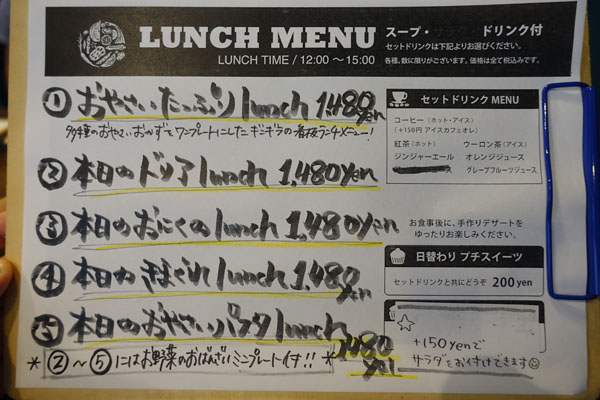 LUNCH MENU
スープ・サラダ・ドリンク付
セットドリンクは下記よりお選びください。
LUNCH TIME / 12:00 ～15:00
各種、数に限りがございます。価格は全て税込みです。
① おやさいたっぷり lunch 1,480yen
多種のおやさいおかずをワンプレートにしたギンギラの看板ランチメニュー!
② 本日のドリア lunch 1,480yen
③ 本日のおにくの lunch 1,480yen
④ 本日のきまぐれ lunch 1,480yen
⑤ 本日のおやさいパスタ lunch 1,480yen
* ②～⑤にはお野菜のおばんざいミニプレート付!! *
セットドリンク MENU
コーヒー(ホット・アイス)
(+150円 アイスカフェオレ)
紅茶(ホット) ウーロン茶(アイス)
ジンジャーエール オレンジジュース
グレープフルーツジュース
お食事後に、手作りデザートを
ゆったりお楽しみください。
日替わり プチスイーツ
セットドリンクと共にどうぞ 200yen
+150yenで
サラダをお付けできます☺